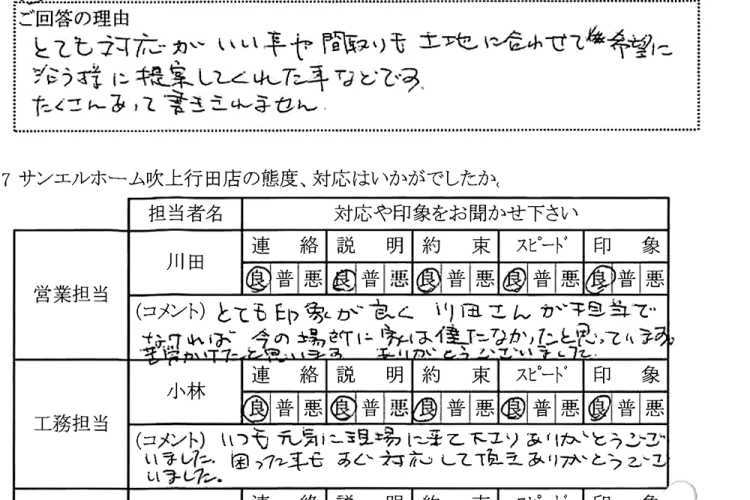 ご回答の理由
とても対応がいい事や間取りも土地に合わせて希望に
沿う様に提案してくれた事などです。
たくさんあって書ききれません。
7 サンエルホーム吹上行田店の態度、対応はいかがでしたか。
担当者名 対応や印象をお聞かせ下さい
営業担当 川田 連絡 説明 約束 スピード 印象
良 普 悪 良 普 悪 良 普 悪 良 普 悪 良 普 悪
(コメント) とても印象が良く 川田さんが担当で
なければ 今の場所に家は建たなかったと思っています。
苦労かけたと思います ありがとうございました。
工務担当 小林 連絡 説明 約束 スピード 印象
良 普 悪 良 普 悪 良 普 悪 良 普 悪 良 普 悪
(コメント) いつも元気に現場に来て下さりありがとうござ
いました。困った事も すぐ対応して頂きありがとうござ
いました。
連絡 説明 約束 スピード 印象